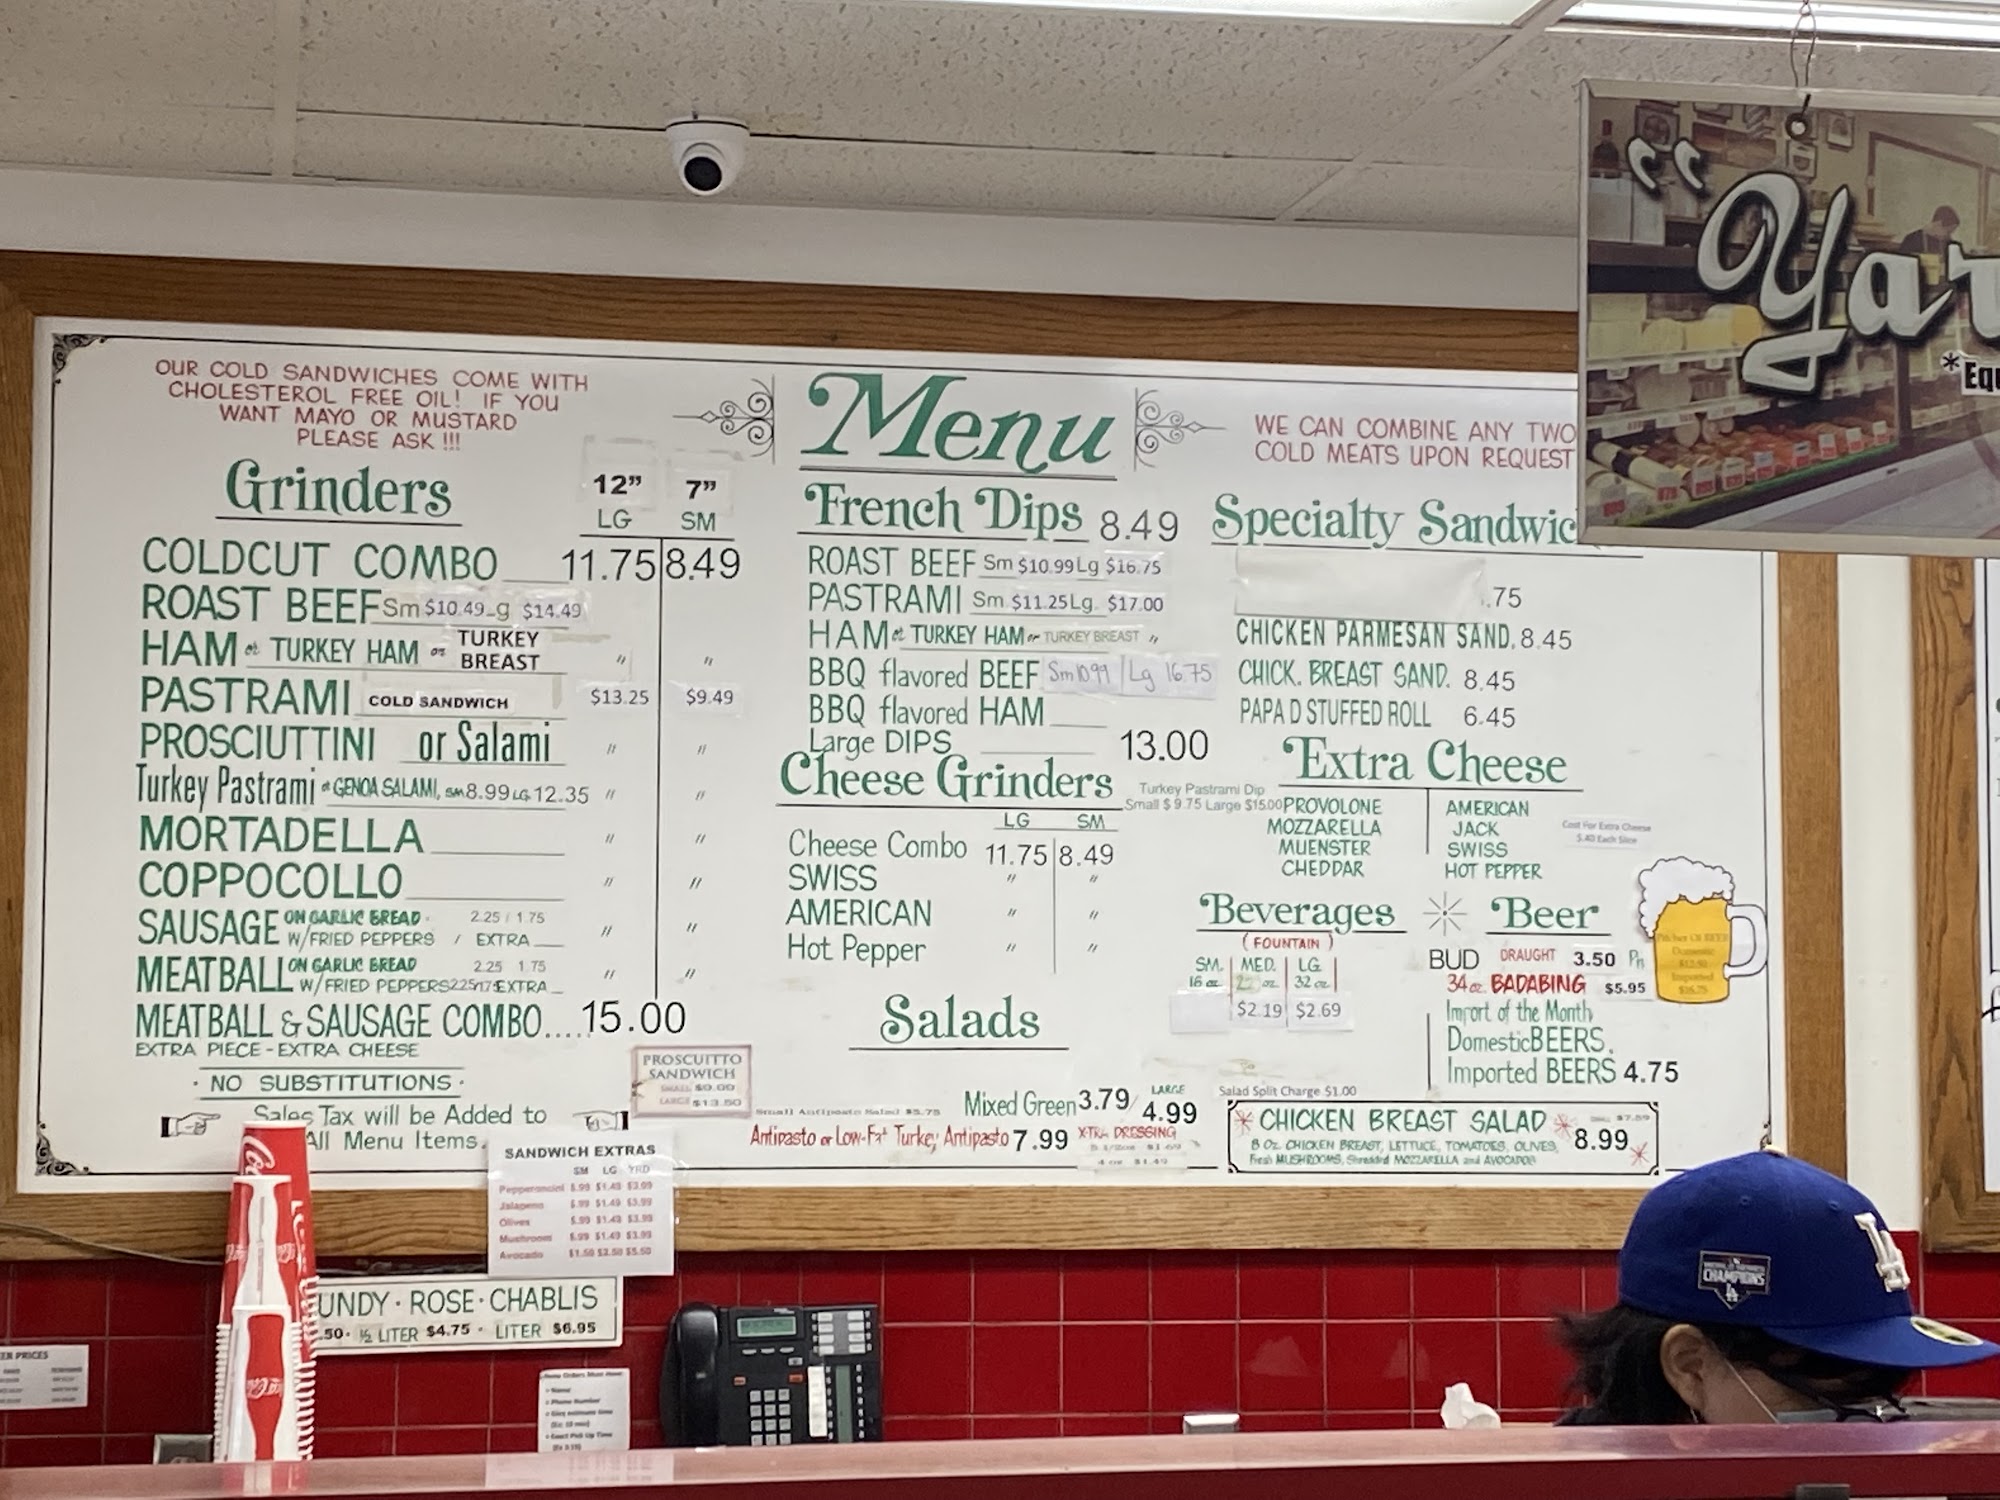 OUR COLD SANDWICHES COME WITH
CHOLESTEROL FREE OIL! IF YOU
WANT MAYO OR MUSTARD
PLEASE ASK !!!
Menu
WE CAN COMBINE ANY TWO
COLD MEATS UPON REQUEST
Grinders
12" 7"
LG SM
COLDCUT COMBO 11.75 8.49
ROAST BEEF Sm $10.49 $14.49
HAM or TURKEY HAM or TURKEY BREAST " "
PASTRAMI COLD SANDWICH $13.25 $9.49
PROSCIUTTINI or Salami " "
Turkey Pastrami or GENOA SALAMI, SM 8.99 LG 12.35 " "
MORTADELLA " "
COPPOCOLLO " "
SAUSAGE ON GARLIC BREAD 2.25 / 1.75
W/FRIED PEPPERS / EXTRA " "
MEATBALL ON GARLIC BREAD 2.25 1.75
W/FRIED PEPPERS EXTRA " "
MEATBALL & SAUSAGE COMBO....15.00
EXTRA PIECE - EXTRA CHEESE
· NO SUBSTITUTIONS ·
Sales Tax will be Added to
All Menu Items.
PROSCUITTO
SANDWICH
LARGE $13.50
French Dips 8.49
ROAST BEEF Sm $10.99 Lg $16.75
PASTRAMI Sm $11.25 Lg. $17.00
HAM or TURKEY HAM or TURKEY BREAST "
BBQ flavored BEEF Sm 10.99 Lg 16.75
BBQ flavored HAM
Large DIPS 13.00
Cheese Grinders
Turkey Pastrami Dip
Small $ 9.75 Large $15.00
LG SM
Cheese Combo 11.75 8.49
SWISS " "
AMERICAN " "
Hot Pepper " "
Salads
Small Antipasto Salad $5.75
Mixed Green 3.79 / LARGE 4.99
Antipasto or Low-Fat Turkey Antipasto 7.99
X-TRA DRESSING
4 oz $1.49
Specialty Sandwic
.75
CHICKEN PARMESAN SAND. 8.45
CHICK. BREAST SAND. 8.45
PAPA D STUFFED ROLL 6.45
Extra Cheese
PROVOLONE AMERICAN
MOZZARELLA JACK
MUENSTER SWISS
CHEDDAR HOT PEPPER
Cost For Extra Cheese
$.40 Each Slice
Beverages
(FOUNTAIN)
SM. MED. LG.
16 oz. 22 oz. 32 oz.
$2.19 $2.69
Beer
BUD DRAUGHT 3.50 Pn
34 oz. BADABING $5.95
Import of the Month
Domestic BEERS.
Imported BEERS 4.75
Pitcher Of BEER
Domestic
$12.50
Imported
$16.75
Salad Split Charge $1.00
CHICKEN BREAST SALAD
8 OZ. CHICKEN BREAST, LETTUCE, TOMATOES, OLIVES,
Fresh MUSHROOMS, Shredded MOZZARELLA and AVOCADO!
$7.59
8.99
SANDWICH EXTRAS
SM LG YRD
Pepperoncini $.99 $1.49 $3.99
Jalapeno $.99 $1.49 $3.99
Olives $.99 $1.49 $3.99
Mushroom $.99 $1.49 $3.99
Avocado $1.50 $2.50 $5.50
UNDY · ROSE · CHABLIS
.50 · ½ LITER $4.75 · LITER $6.95
Phone Number
Exact Pick Up Time
"Yar
*Equ
CHAMPIONS
LA
Coca-Cola